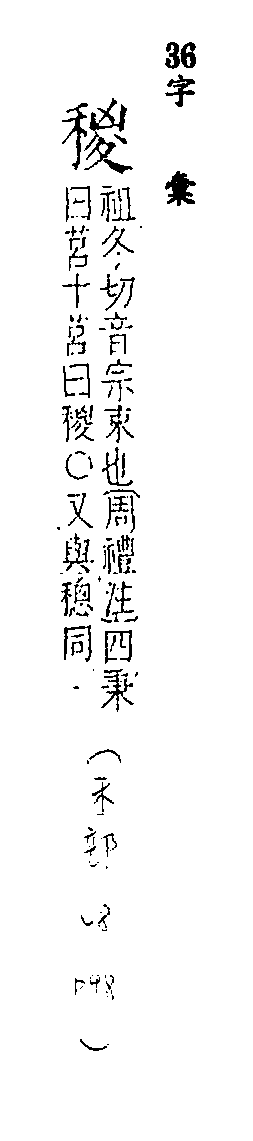 36字彙
稯
祖冬切音宗束也周禮注四秉
曰筥十筥曰稯○又與䆫同
(禾部